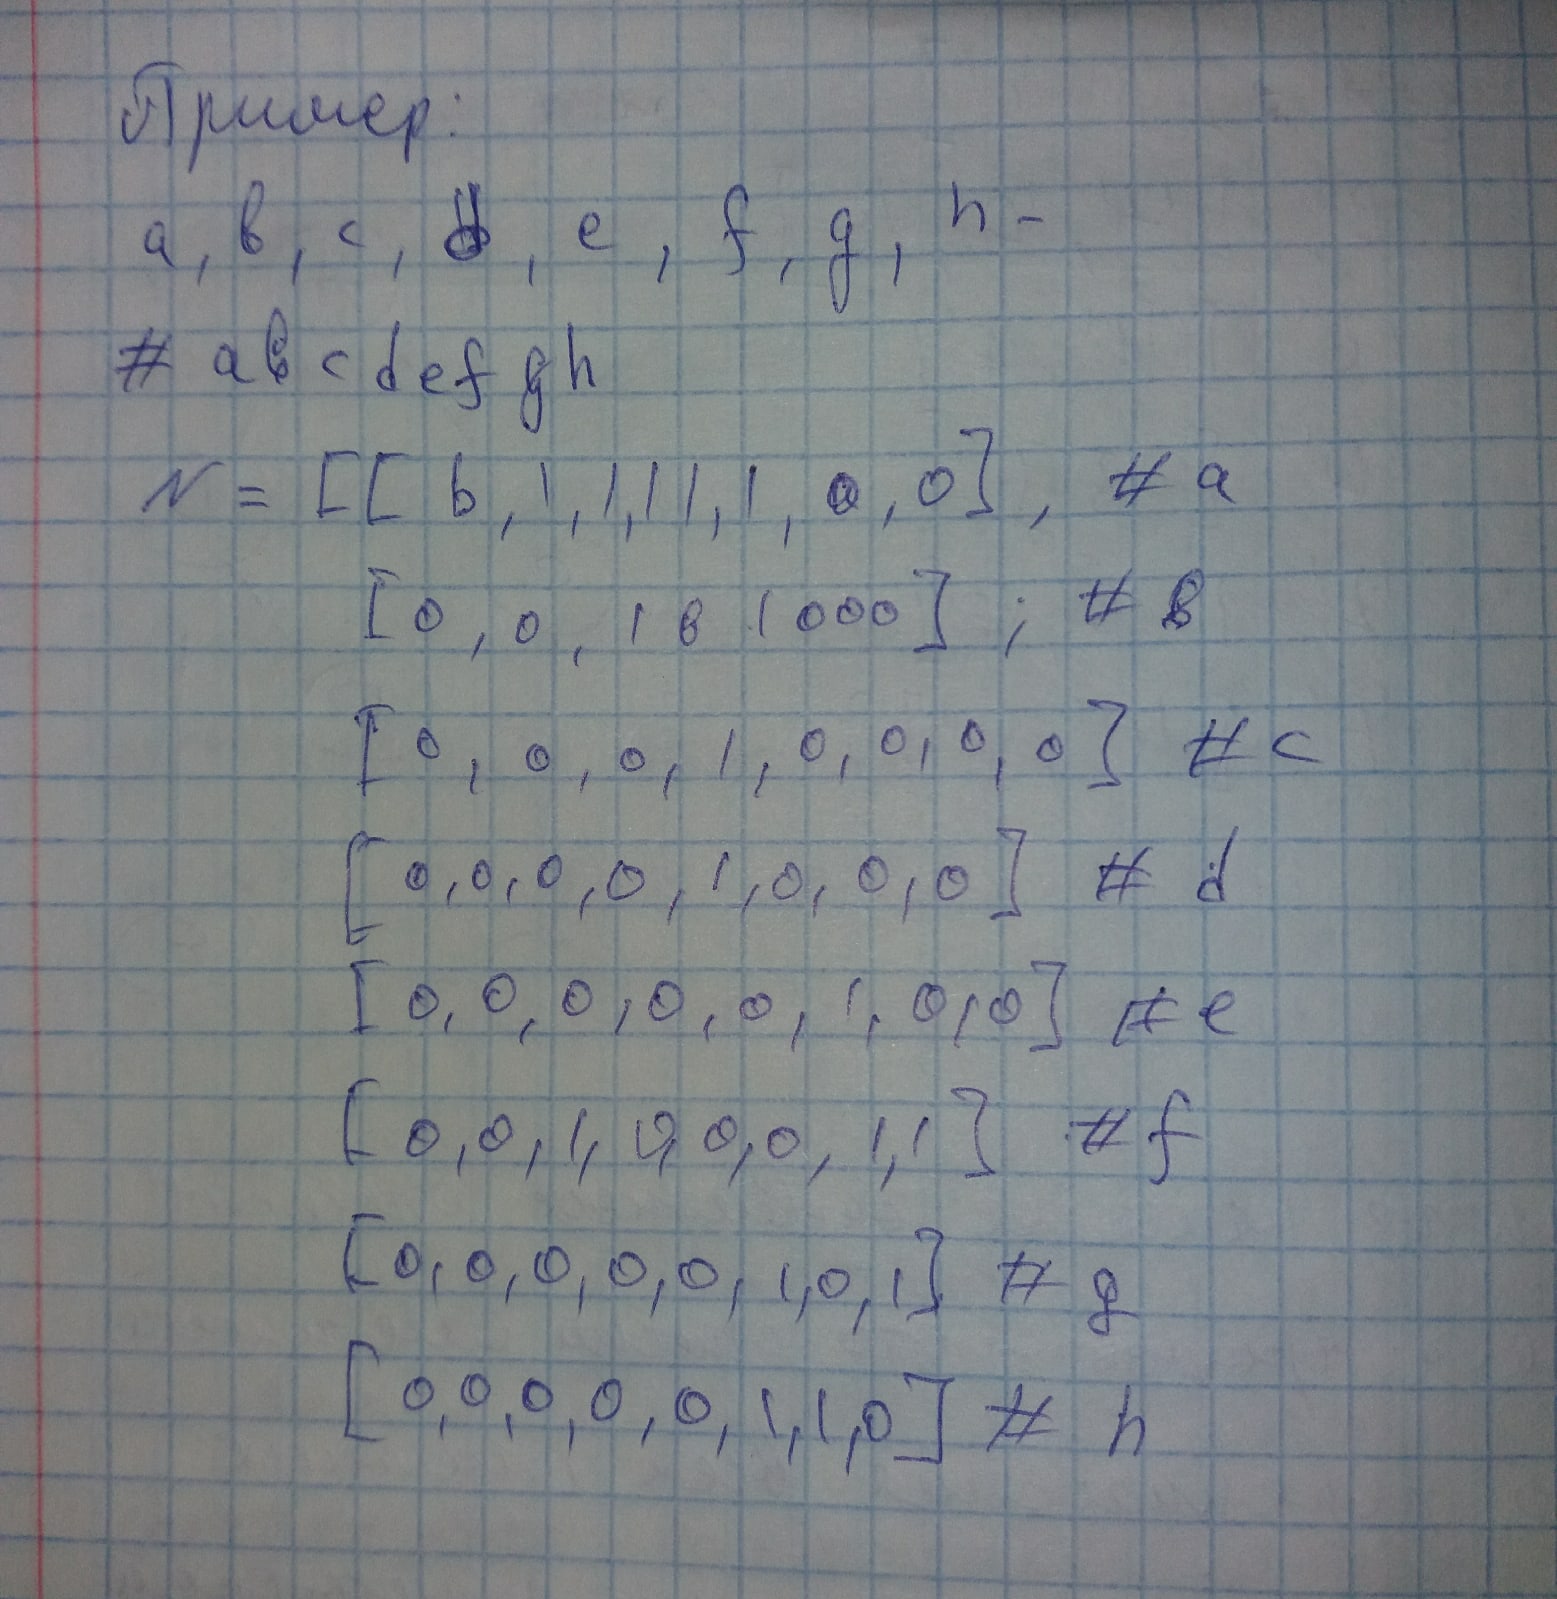 Пример:
a, b, c, d, e, f, g, h -
# abcdefgh
N = [[ b, 1, 1, 1 1, 1, 0, 0], # a
[0, 0, 1 0 1 0 0 0] ; # b
[0, 0, 0, 1, 0, 0, 0, 0] # c
[0, 0, 0, 0, 1, 0, 0, 0] # d
[0, 0, 0, 0, 0, 1, 0, 0] # e
[0, 0, 1, 0, 0, 0, 1, 1] # f
[0, 0, 0, 0, 0, 1, 0, 1] # g
[0, 0, 0, 0, 0, 1, 1, 0] # h